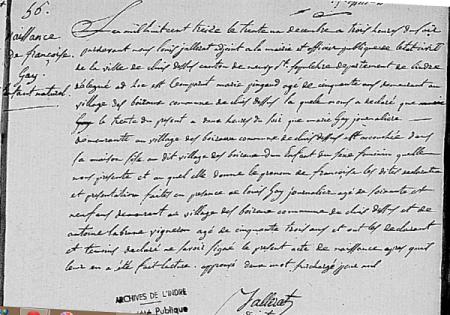 56.
naissance
de françoise
Gay.
enfant naturel.
L'an mil huit cent treize le trente un decembre a trois heures du soir
pardevant nous louis jallerat adjoint a la mairie et officier publique de l'etat civil
de la ville de canton de neuvy St sepulchre departement de Lindre
délégué ad hoc est Comparut marie pinard age de cinquante ans demeurant au
village des boiraux commune de la quelle nous a déclaré que marie
Gay le trente du present a deux heures du soir que marie Gay journaliere
demeurante au village des boiraux commune de est accouchée dans
sa maison sise au dit village des boiraux d'un Enfant du sexe feminin quelle
nous presente et au quel elle donne le prenom de françoise les dites declaration
et presentation faites en presence de louis Gay journalier agé de soixante et
neuf ans demeurant au village des boiraux commune de et de
antoine labrune vigneron agé de cinquante trois ans et ont les declarant
et temoins declaré ne savoir signé le present acte de naissance apres quil
leur en a été fait lecture. approuvé deux mot surchargé
Jallerat
ARCHIVES DE L'INDRE
Publique